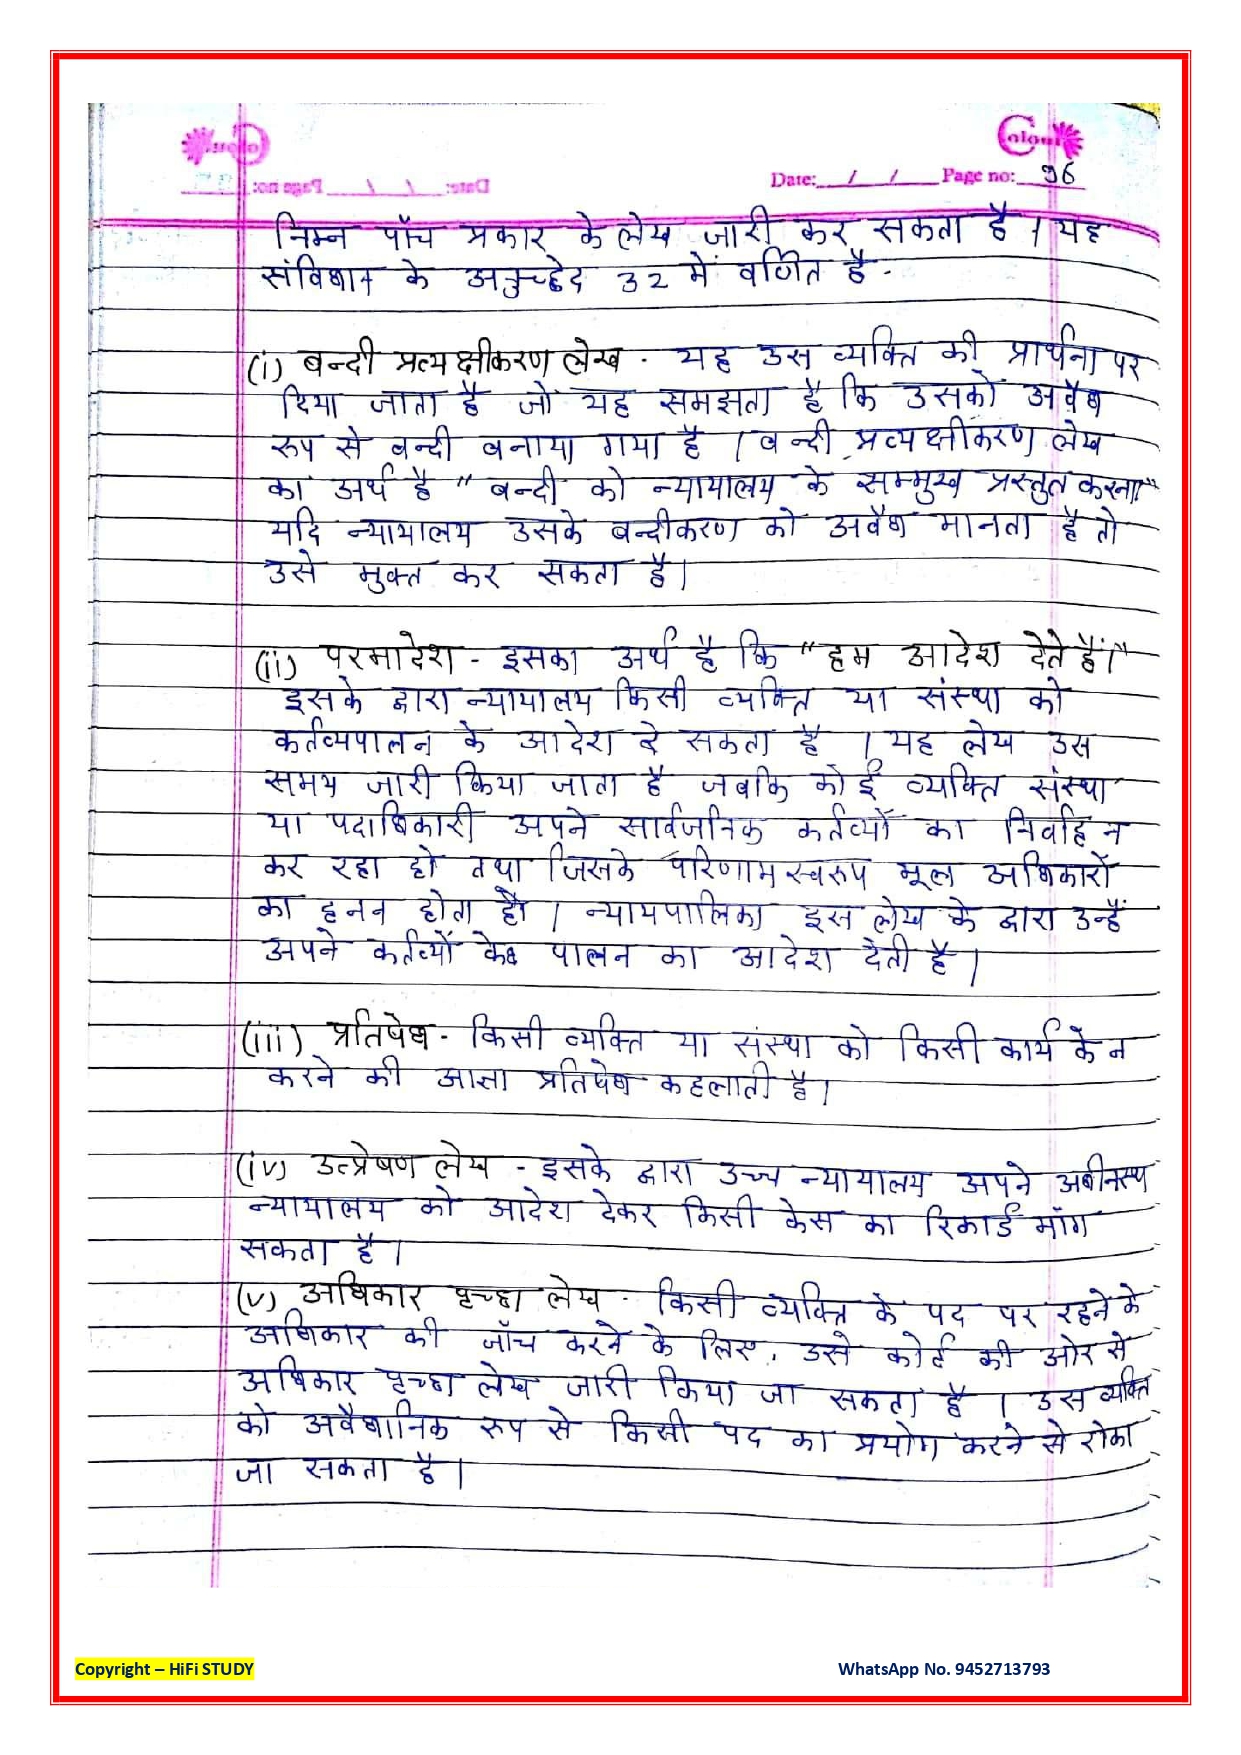 Colour
Date: / / Page no: 96
निम्न पाँच प्रकार के लेख जारी कर सकता है । यह
संविधान के अनुच्छेद 32 में वर्णित है -
(i) बन्दी प्रत्यक्षीकरण लेख - यह उस व्यक्ति की प्रार्थना पर
दिया जाता है जो यह समझता है कि उसको अवैध
रूप से बन्दी बनाया गया है । बन्दी प्रत्यक्षीकरण लेख
का अर्थ है " बन्दी को न्यायालय के सम्मुख प्रस्तुत करना"
यदि न्यायालय उसके बन्दीकरण को अवैध मानता है तो
उसे मुक्त कर सकता है ।
(ii) परमादेश - इसका अर्थ है कि "हम आदेश देते हैं।"
इसके द्वारा न्यायालय किसी व्यक्ति या संस्था को
कर्तव्यपालन के आदेश दे सकता है । यह लेख उस
समय जारी किया जाता है जबकि कोई व्यक्ति संस्था
या पदाधिकारी अपने सार्वजनिक कर्तव्यों का निर्वाह न
कर रहा हो तथा जिसके परिणामस्वरूप मूल अधिकारों
का हनन होता हो । न्यायपालिका इस लेख के द्वारा उन्हें
अपने कर्तव्यों के पालन का आदेश देती है ।
(iii) प्रतिषेध - किसी व्यक्ति या संस्था को किसी कार्य के न
करने की आज्ञा प्रतिषेध कहलाती है ।
(iv) उत्प्रेषण लेख - इसके द्वारा उच्च न्यायालय अपने अधीनस्थ
न्यायालय को आदेश देकर किसी केस का रिकार्ड मांग
सकता है ।
(v) अधिकार पृच्छा लेख - किसी व्यक्ति के पद पर रहने के
अधिकार की जाँच करने के लिए, उसे कोर्ट की ओर से
अधिकार पृच्छा लेख जारी किया जा सकता है । उस व्यक्ति
को अवैधानिक रूप से किसी पद का प्रयोग करने से रोका
जा सकता है ।
Copyright – HiFi STUDY WhatsApp No. 9452713793